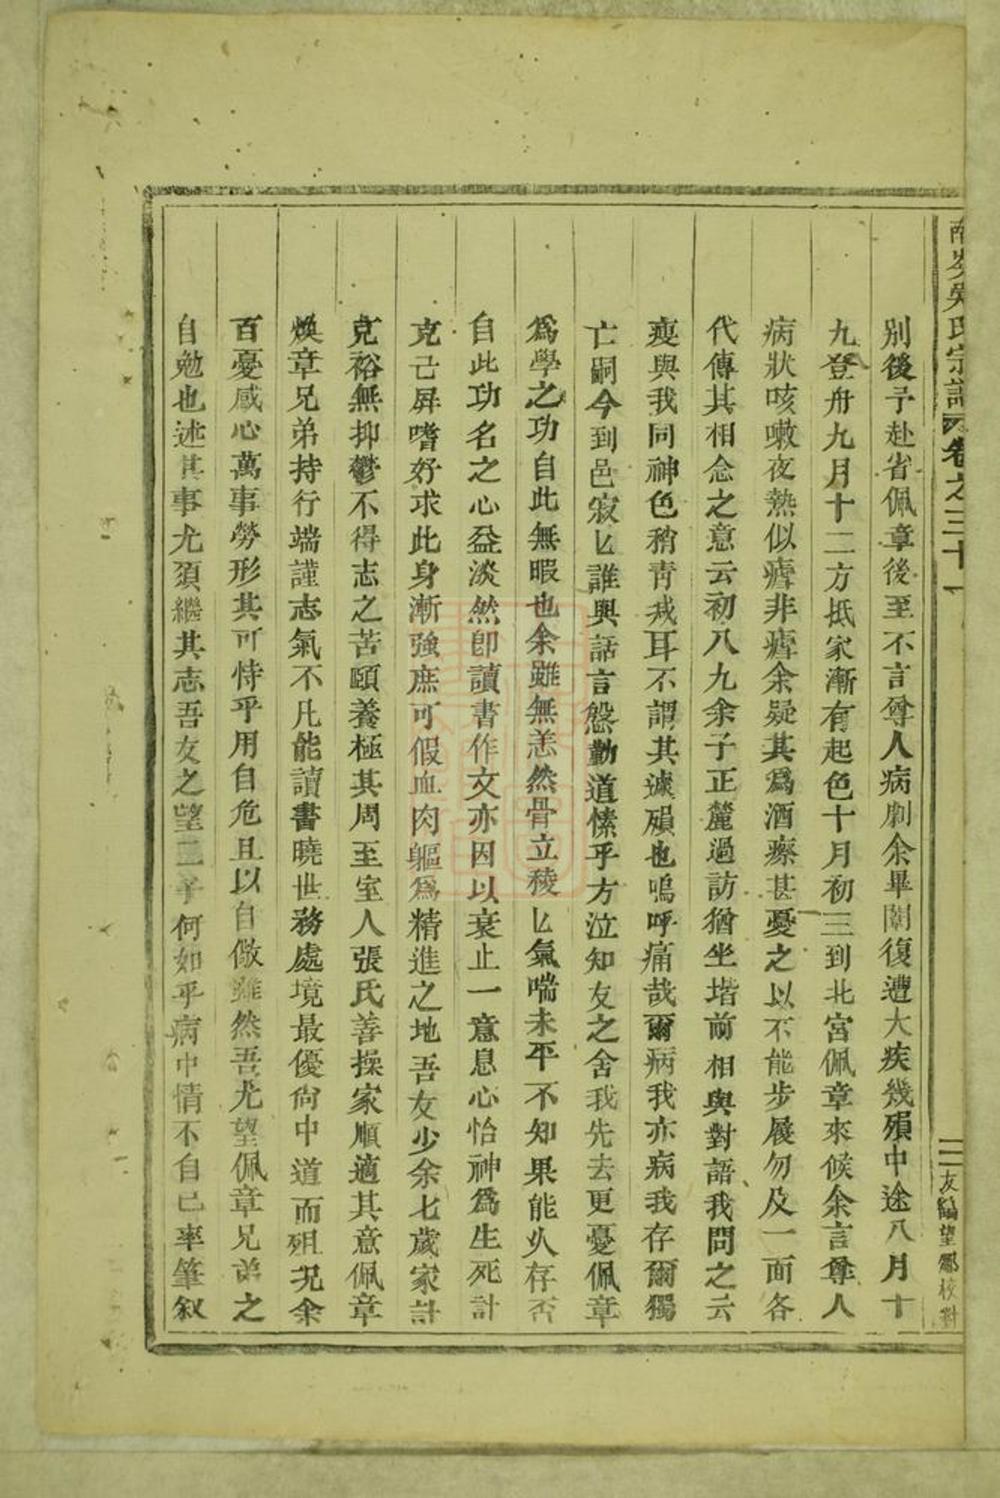 南岑吳氏宗譜卷之三十一
三 友編望鄒校對
別後予赴省佩章後至不言尊人病劇余畢闈復遭大疾幾殞中途八月十
九登舟九月十二方抵家漸有起色十月初三到北宮佩章來候余言尊人
病狀咳嗽夜熱似瘧非瘧余疑其爲酒瘵甚憂之以不能步屧勿及一面各
代傳其相念之意云初八九余子正麓過訪猶坐堦前相與對語我問之云
瘦與我同神色稍青戎耳不謂其遽殞也嗚呼痛哉爾病我亦病我存爾獨
亡嗣今到邑寂匕誰與話言慇勤道愫乎方泣知友之舍我先去更憂佩章
爲學之功自此無暇也余雖無恙然骨立稜匕氣喘未平不知果能久存否
自此功名之心益淡然卽讀書作文亦因以衰止一意息心怡神爲生死計
克己屏嗜好求此身漸強庶可假血肉軀爲精進之地吾友少余七歲家計
克裕無抑鬱不得志之苦頤養極其周至室人張氏善操家順適其意佩章
煥章兄弟持行端謹志氣不凡能讀書曉世務處境最優尙中道而殂況余
百憂感心萬事勞形其可恃乎用自危且以自儆雖然吾尤望佩章兄弟之
自勉也述其事尤須繼其志吾友之望二子何如乎病中情不自已率筆叙